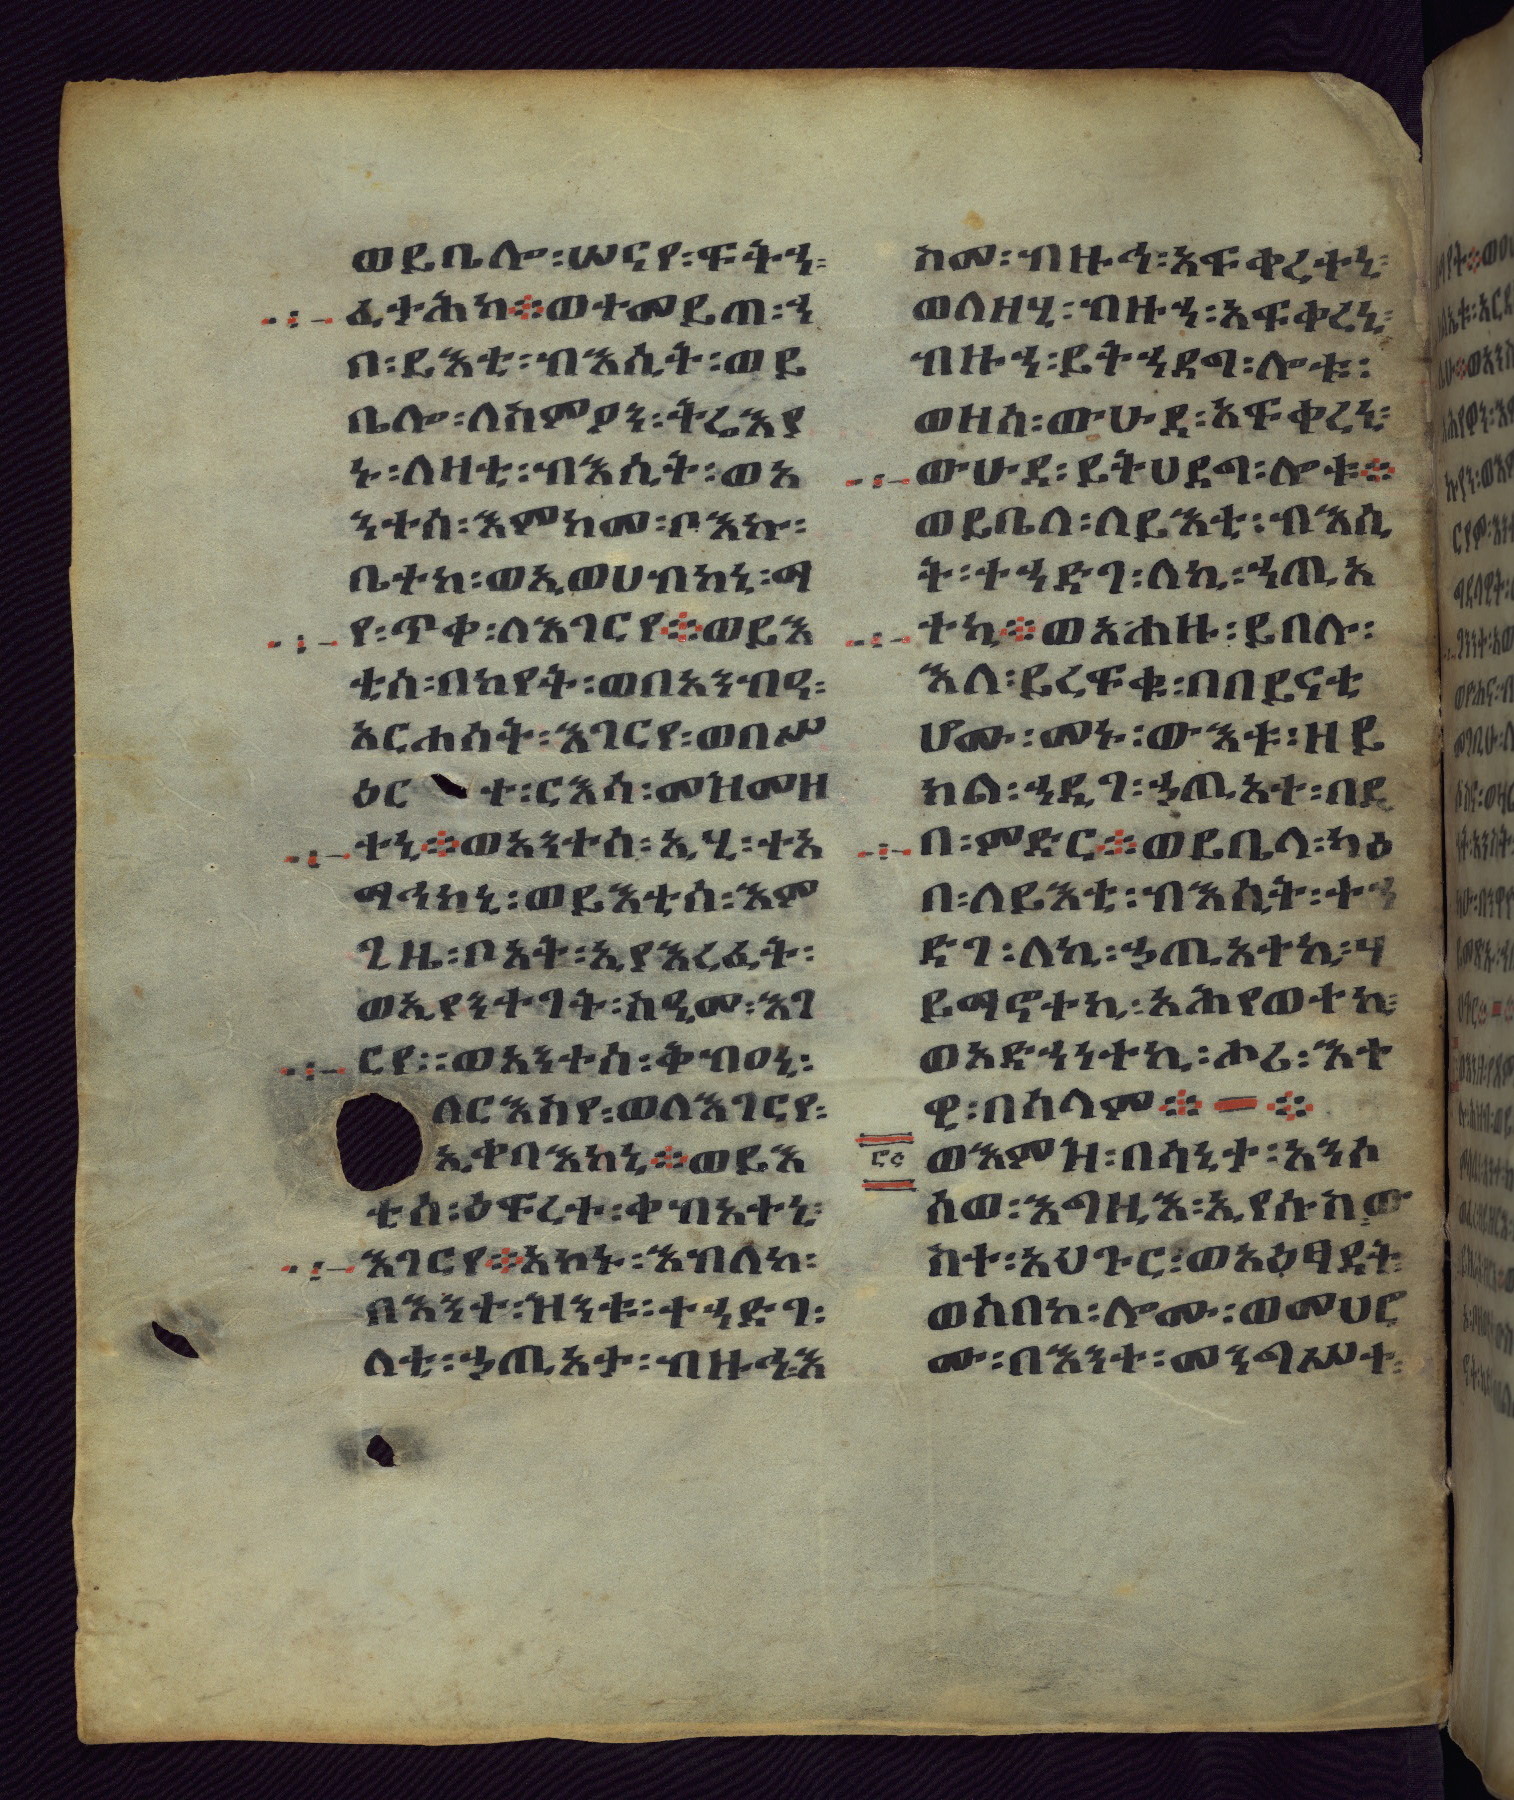 ወይቤሎ፡ሠናየ፡ፍትሓ፡
ፈታሕከ፨ወተመይጠ፡ኀ
በ፡ይእቲ፡ብእሲት፡ወይ
ቤሎ፡ለስምዖን፡ትሬእያ
ኑ፡ለዛቲ፡ብእሲት፡ወአ
ንተሰ፡እምከመ፡ቦእኩ፡
ቤተከ፡ወኢወሀብከኒ፡ማ
የ፡ጥቀ፡ለእገርየ፨ወይእ
ቲሰ፡በከየት፡ወበአንብዓ፡
አርሐሰት፡እገርየ፡ወበሥ
ዕርተ፡ርእሳ፡መዝመዘ
ተኒ፨ወአንተሰ፡ኢሂ፡ተአ
ማኅከኒ፡ወይእቲሰ፡እም
ጊዜ፡ቦአት፡ኢያእረፈት፡
ወኢያንተገት፡ስዒመ፡እገ
ርየ፡፡ወአንተሰ፡ቅብዐኒ፡
ለርእስየ፡ወለእገርየ፡
ኢቀባእከኒ፨ወይእ
ቲሰ፡ዕፍረተ፡ቀብአተኒ፡
እገርየ፨እኮኑ፡እብለከ፡
በእንተ፡ዝንቱ፡ተኀድገ፡
ላቲ፡ኃጢአታ፡ብዙኅ፡እ
ስመ፡ብዙኅ፡አፍቀረተኒ፡
ወለዘሂ፡ብዙኅ፡አፍቀረኒ፡
ብዙኅ፡ይትኀደግ፡ሎቱ፡
ወዘሰ፡ውሁደ፡አፍቀረኒ፡
ውሁደ፡ይትሀደግ፡ሎቱ፨
ወይቤላ፡ለይእቲ፡ብእሲ
ት፡ተኀድገ፡ለኪ፡ኀጢአ
ትኪ፨ወአሐዙ፡ይበሉ፡
እለ፡ይረፍቁ፡በበይናቲ
ሆሙ፡መኑ፡ውእቱ፡ዘይ
ክል፡ኀዲገ፡ኃጢአተ፡በዲ
በ፡ምድር፨ወይቤላ፡ካዕ
በ፡ለይእቲ፡ብእሲት፡ተኀ
ድገ፡ለኪ፡ኃጢአተኪ፡ሃ
ይማኖተኪ፡አሕየወተኪ፡
ወአድኀነተኪ፡ሑሪ፡እቶ
ዊ፡በሰላም፨ ፨
፳፭
ወእምዝ፡በሳኒታ፡አንሶ
ሰወ፡እግዚእ፡ኢየሱስ፡ው
ስተ፡አህጉር፡ወአዕፃዳት፡
ወሰበከ፡ሎሙ፡ወመሀሮ
ሙ፡በእንተ፡መንግሥተ፡